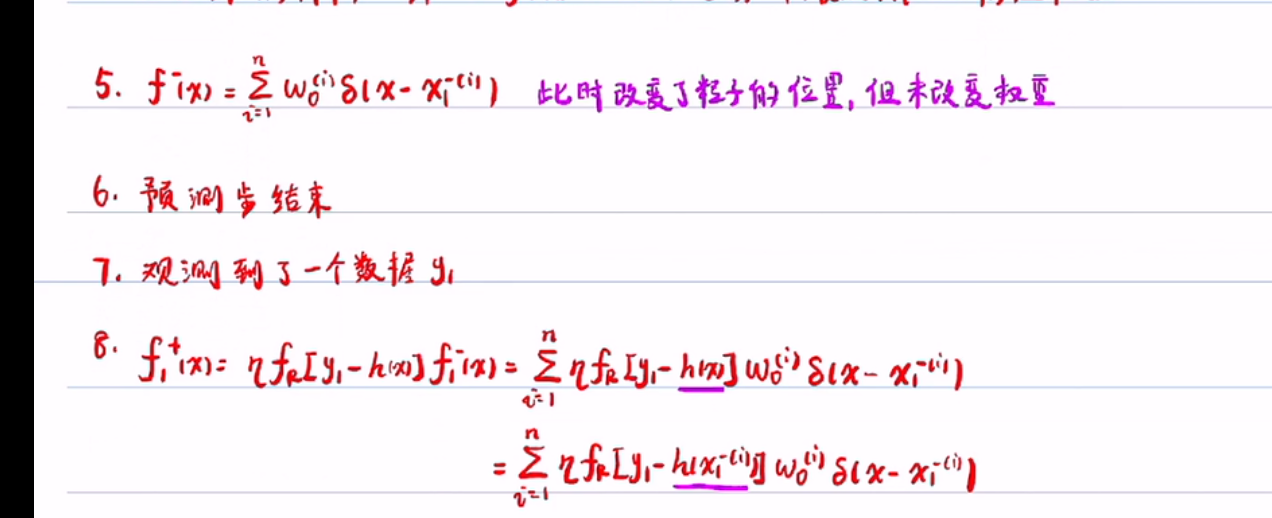 5. f⁻(x) = Σ_{i=1}^{n} w₀⁽ⁱ⁾ δ(x - x₁⁻⁽ⁱ⁾) 此时改变了粒子的位置, 但未改变权重
6. 预测步结束
7. 观测到了一个数据 y₁
8. f₁⁺(x) = η f_R[y₁ - h(x)] f₁⁻(x) = Σ_{i=1}^{n} η f_R[y₁ - h(x)] w₀⁽ⁱ⁾ δ(x - x₁⁻⁽ⁱ⁾)
= Σ_{i=1}^{n} η f_R[y₁ - h(x₁⁻⁽ⁱ⁾)] w₀⁽ⁱ⁾ δ(x - x₁⁻⁽ⁱ⁾)